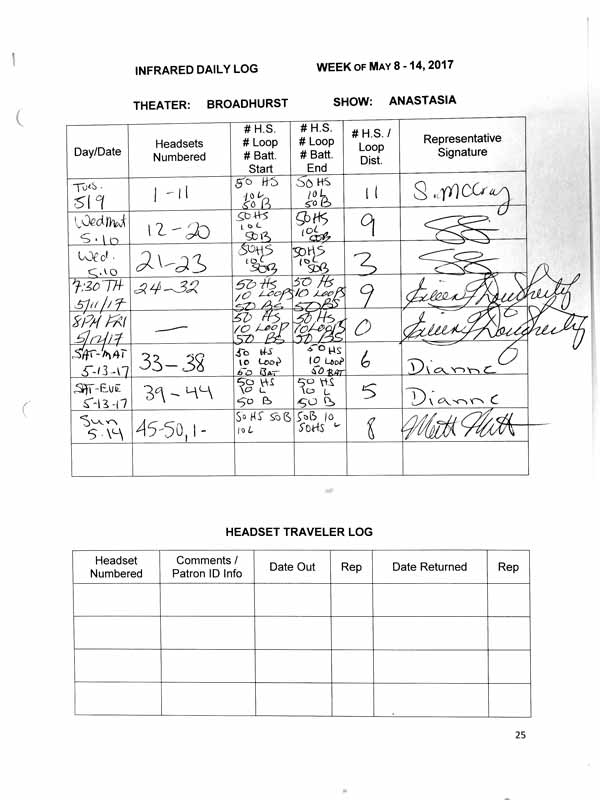 INFRARED DAILY LOG WEEK OF MAY 8 - 14, 2017
THEATER: BROADHURST SHOW: ANASTASIA
Day/Date Headsets Numbered # H.S. # Loop # Batt. Start # H.S. # Loop # Batt. End # H.S. / Loop Dist. Representative Signature
Tues. 5/9 1-11 50 HS 10L 50 B 50 HS 10L 50 B 11 S. McCray
Wed Mat 5.10 12-20 50HS 10L 50B 50HS 10L 50B 9
Wed. 5.10 21-23 50HS 10L 50B 50HS 10L 50B 3
7:30 TH 5/11/17 24-32 50 HS 10 LOOPS 50 BS 50 HS 10 LOOPS 50 BS 9 Eileen F Dougherty
8PM FRI 5/12/17 — 50 HS 10 LOOP 50 BS 50 HS 10 LOOPS 50 BS 0 Eileen F Dougherty
SAT-MAT 5-13-17 33-38 50 HS 10 LOOP 50 BAT 50 HS 10 LOOP 50 BAT 6 Dianne
SAT-EVE 5-13-17 39-44 50 HS 10 L 50 B 50 HS 10 L 50 B 5 Dianne
Sun 5.14 45-50, 1- 50 HS 50B 10L 50B 10 50HS L 8 Matt
HEADSET TRAVELER LOG
Headset Numbered Comments / Patron ID Info Date Out Rep Date Returned Rep
25